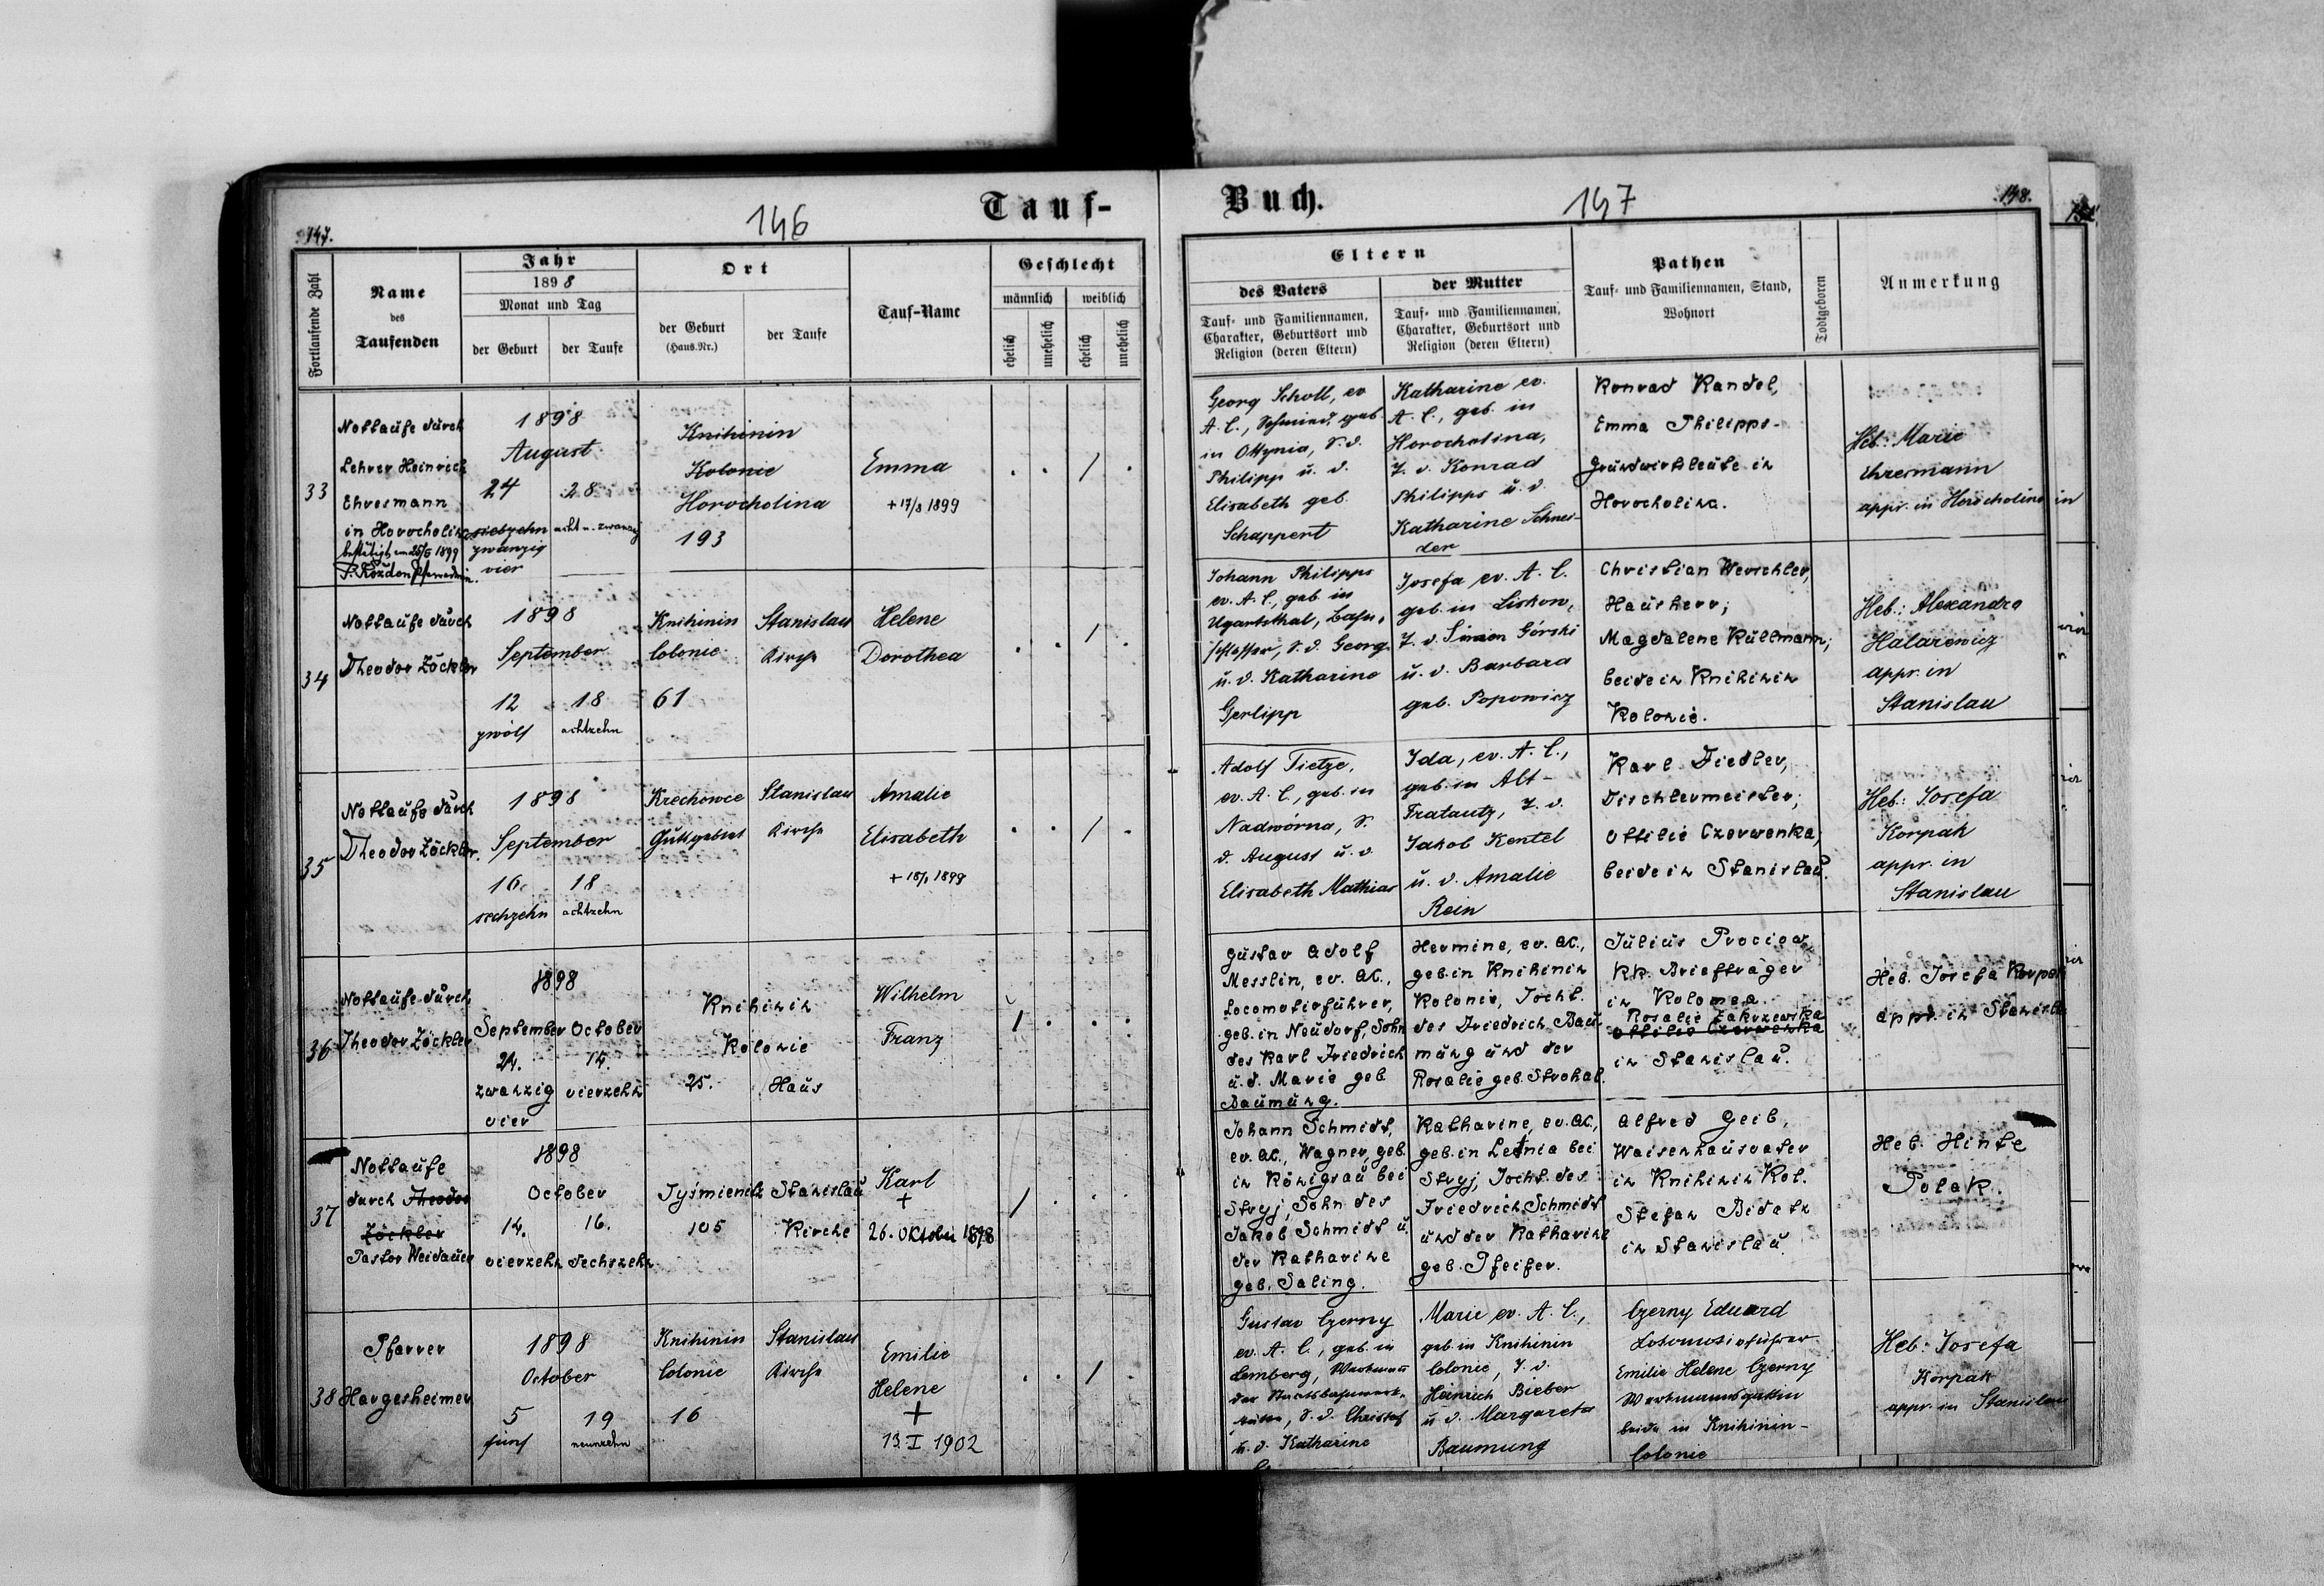 147.
146
Tauf-
Fortlaufende Zahl
Name
des
Taufenden
Jahr
1898
Monat und Tag
der Geburt
der Taufe
Ort
der Geburt
(Haus-Nr.)
der Taufe
Tauf-Name
Geschlecht
männlich
weiblich
ehelich
unehelich
ehelich
unehelich
33
Nottaufe durch
Lehrer Heinrich
Ehresmann
in Horocholina
bestätigt am 25/5 1899
1898
August
24
28
siebzehn
acht u. zwanzig
zwanzig
vier
Knihinin
Kolonie
Horocholina
193
Emma
+ 17/8 1899
34
Nottaufe durch
Theodor Zöckler
1898
September
12
18
zwölf
achtzehn
Knihinin
Colonie
61
Stanislau
Kirche
Helene
Dorothea
35
Nottaufe durch
Theodor Zöckler.
1898
September
16
18
sechzehn
achtzehn
Krechowce
Gutsgebiet
Stanislau
Kirche
Amalie
Elisabeth
36
Nottaufe durch
Theodor Zöckler
1898
September October
24.
14.
zwanzig
vierzehn
vier
Knihinin
Kolonie
25.
Haus
Wilhelm
Franz
37
Nottaufe
durch Theodor
Zöckler
Pastor Weidauer
1898
October
14.
16.
vierzehn sechszehn
Tyśmienitz
105
Stanislau
Kirche
Karl
+
26. Oktober 1898
38
Pfarrer
Hargesheimer
1898
October
5
19
fünf
neunzehn
Knihinin
Colonie
16
Stanislau
Kirche
Emilie
Helene
+
13 I 1902
Buch.
147
148.
Eltern
des Vaters
Tauf- und Familiennamen,
Charakter, Geburtsort und
Religion (deren Eltern)
der Mutter
Tauf- und Familiennamen,
Charakter, Geburtsort und
Religion (deren Eltern)
Pathen
Tauf- und Familiennamen, Stand,
Wohnort
Todtgeboren
Anmerkung
Georg Scholl, ev
A. C., Schmied, geb.
in Ottynia, S. d.
Philipp u. d.
Elisabeth geb
Schappert
Katharine ev.
A. C., geb. in
Horocholina,
T. d. Konrad
Philipps u. d.
Katharine Schnei-
der
Konrad Kandel,
Emma Philipps-
Grundwirtsleute in
Horocholina.
Heb: Marie
appr. in Horocholina
Johann Philipps
ev. A. C., geb. in
Ugartsthal, Bahn-
schlosser, S. d. Georg
u. d. Katharine
Gerlipp
Josefa ev. A. C.
geb. in Liskow,
T. d. Simon Górski
u. d. Barbara
geb. Popowicz
Christian Werschler,
Hausherr;
Magdalene Kullmann,
beide in Knihinin
Kolonie.
Heb: Alexandra
Halarewicz
appr. in
Stanislau
Adolf Tietze,
ev. A. C., geb. in
Nadwórna, S.
d. August u. d
Elisabeth Mathias
Ida, ev. A. C.,
geb. in Alt-
Fratautz, T. d.
Jakob Kentel
u. d. Amalie
Rein
Karl Fiedler,
Tischlermeister;
Ottilie Czerwenka,
beide in Stanislau.
Heb: Josefa
Korpak
appr. in
Stanislau
Gustav Adolf
Messlin, ev. AC.,
Locomotivführer,
geb. in Neudorf, Sohn
des Karl Friedrich
u. d. Marie geb
Baumung.
Hermine, ev. AC.,
geb. in Knihinin
Kolonie, Tocht.
des Friedrich Bau-
mung und der
Rosalie geb. Strohal.
Julius
KK. Briefträger
in Kolomea.
Rosalie Zakrzewska
Ottilie Czerwenka
in Stanislau.
Heb. Josefa Korpak
appr. in Stanisla
Johann Schmidt,
ev. AC., Wagner, geb.
in Königsau bei
Stryj, Sohn des
Jakob Schmidt u.
der Katharine
geb. Saling.
Katharine, ev. AC.,
geb. in Letnia bei
Stryj, Tocht. des
Friedrich Schmidt
und der Katharine
geb. Pfeifer.
Alfred Geib,
Waisenhausvater
in Knihinin Kol.
Stefan
in Stanislau.
Heb. Hinte
Polak.
Gustav Czerny
ev. A. C., geb. in
Lemberg, Werkmann
der Staatsbahnwerk-
stätte, S. d. Christof
u. d. Katharine
Marie ev. A. C.,
geb. in Knihinin
Colonie, T. d.
Heinrich Bieber
u. d. Margareta
Baumung
Czerny Eduard
Lokomotivführer
Emilie Helene Czerny
Werkmannsgattin
beide in Knihinin-
Colonie
Heb: Josefa
Korpak
appr. in Stanislau